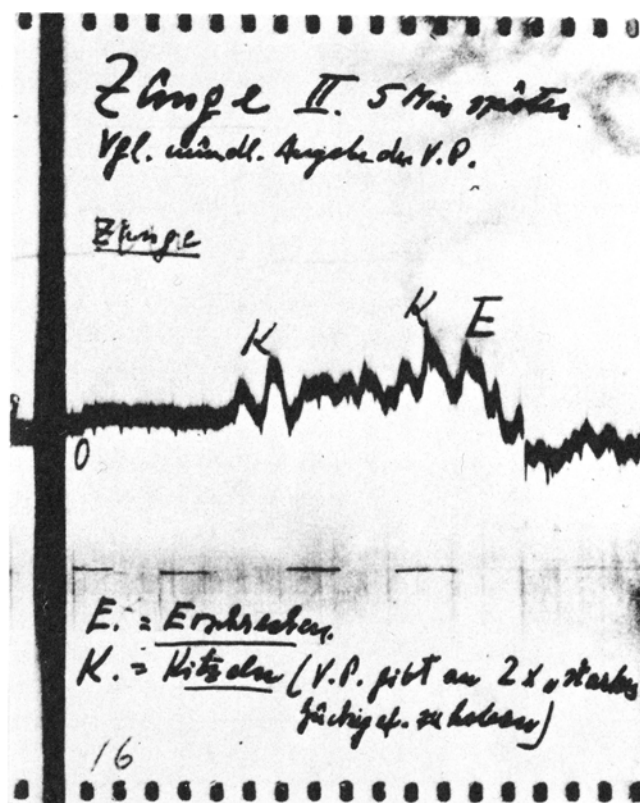 Zunge II. 5 Min später
Vgl. mündl. Angabe der V.P.
Zunge
K
K
E
0
E. = Erschrecken.
K. = Kitzeln (V.P. gibt an 2 x „starkes
16